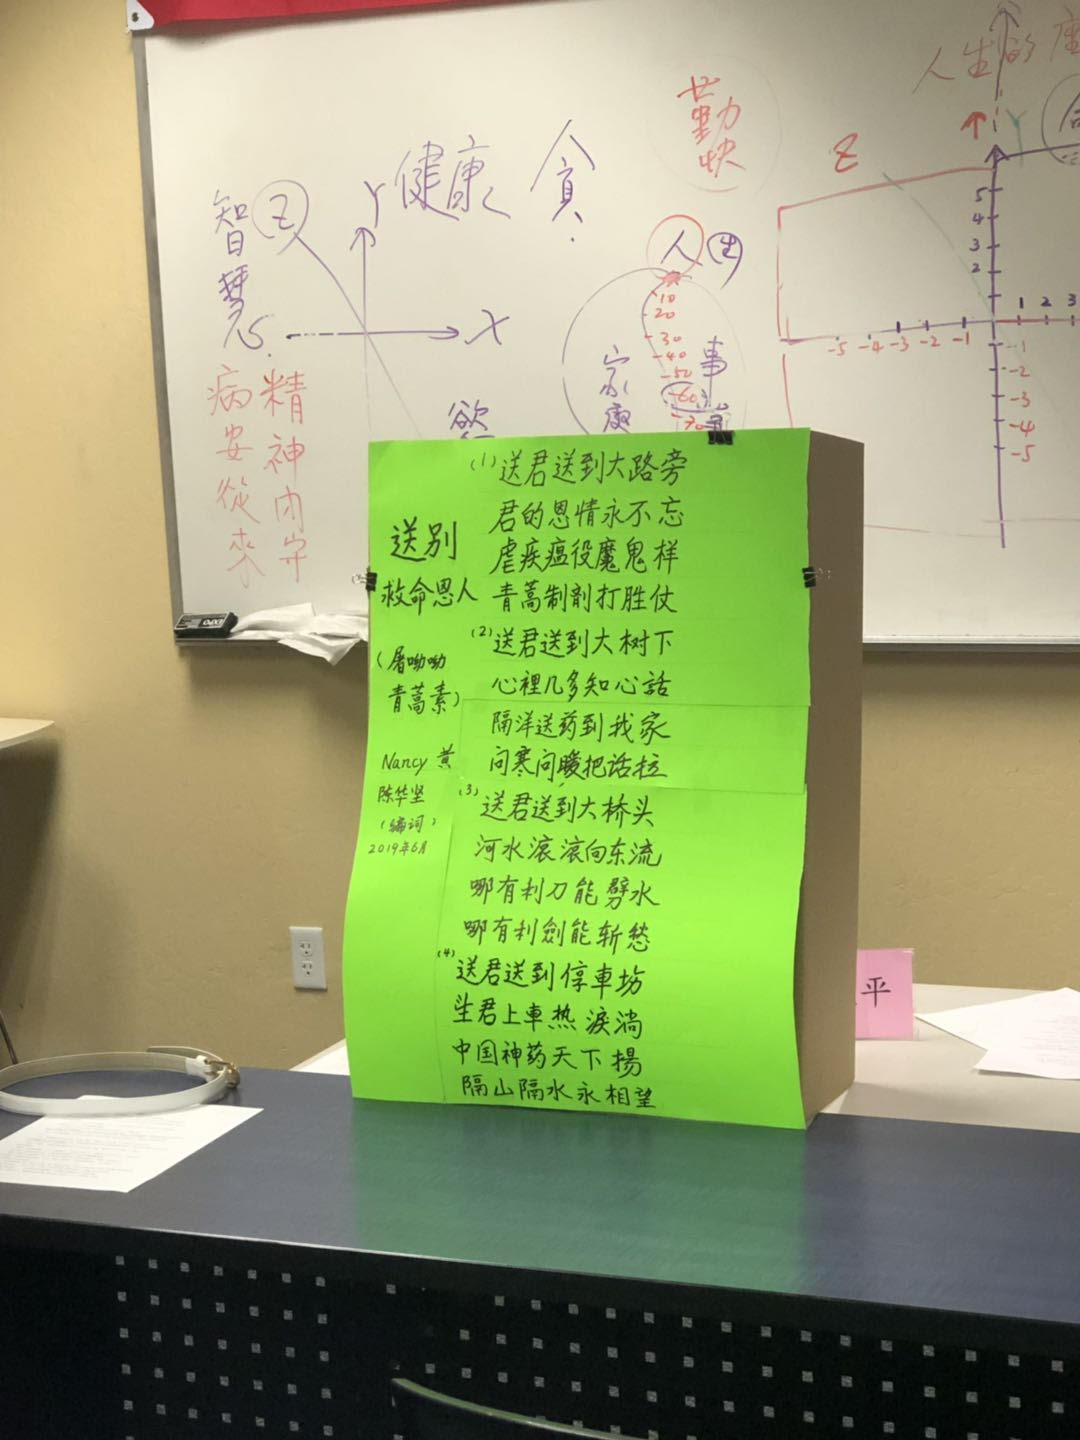 人生的座
勤快
Z
健康
貪
Y
Z
智慧
X
人生
10
20
30
40
50
60
70
家庭
事
慾
精神内守
病安從來
5
4
3
2
1 2 3
-5 -4 -3 -2 -1
-1
-2
-3
-4
-5
EXPO
送别
救命恩人
(屠呦呦
青蒿素)
Nancy 黄
陈华坚
(编词)
2019年6月
(1)送君送到大路旁
君的恩情永不忘
虐疾瘟役魔鬼样
青蒿制剤打胜仗
(2)送君送到大树下
心裡几多知心話
隔洋送药到我家
问寒问暖把话拉
(3)送君送到大桥头
河水滚滚向东流
哪有利刀能劈水
哪有利劍能斩愁
(4)送君送到停車场
望君上車热淚淌
中国神药天下揚
隔山隔水永相望
平